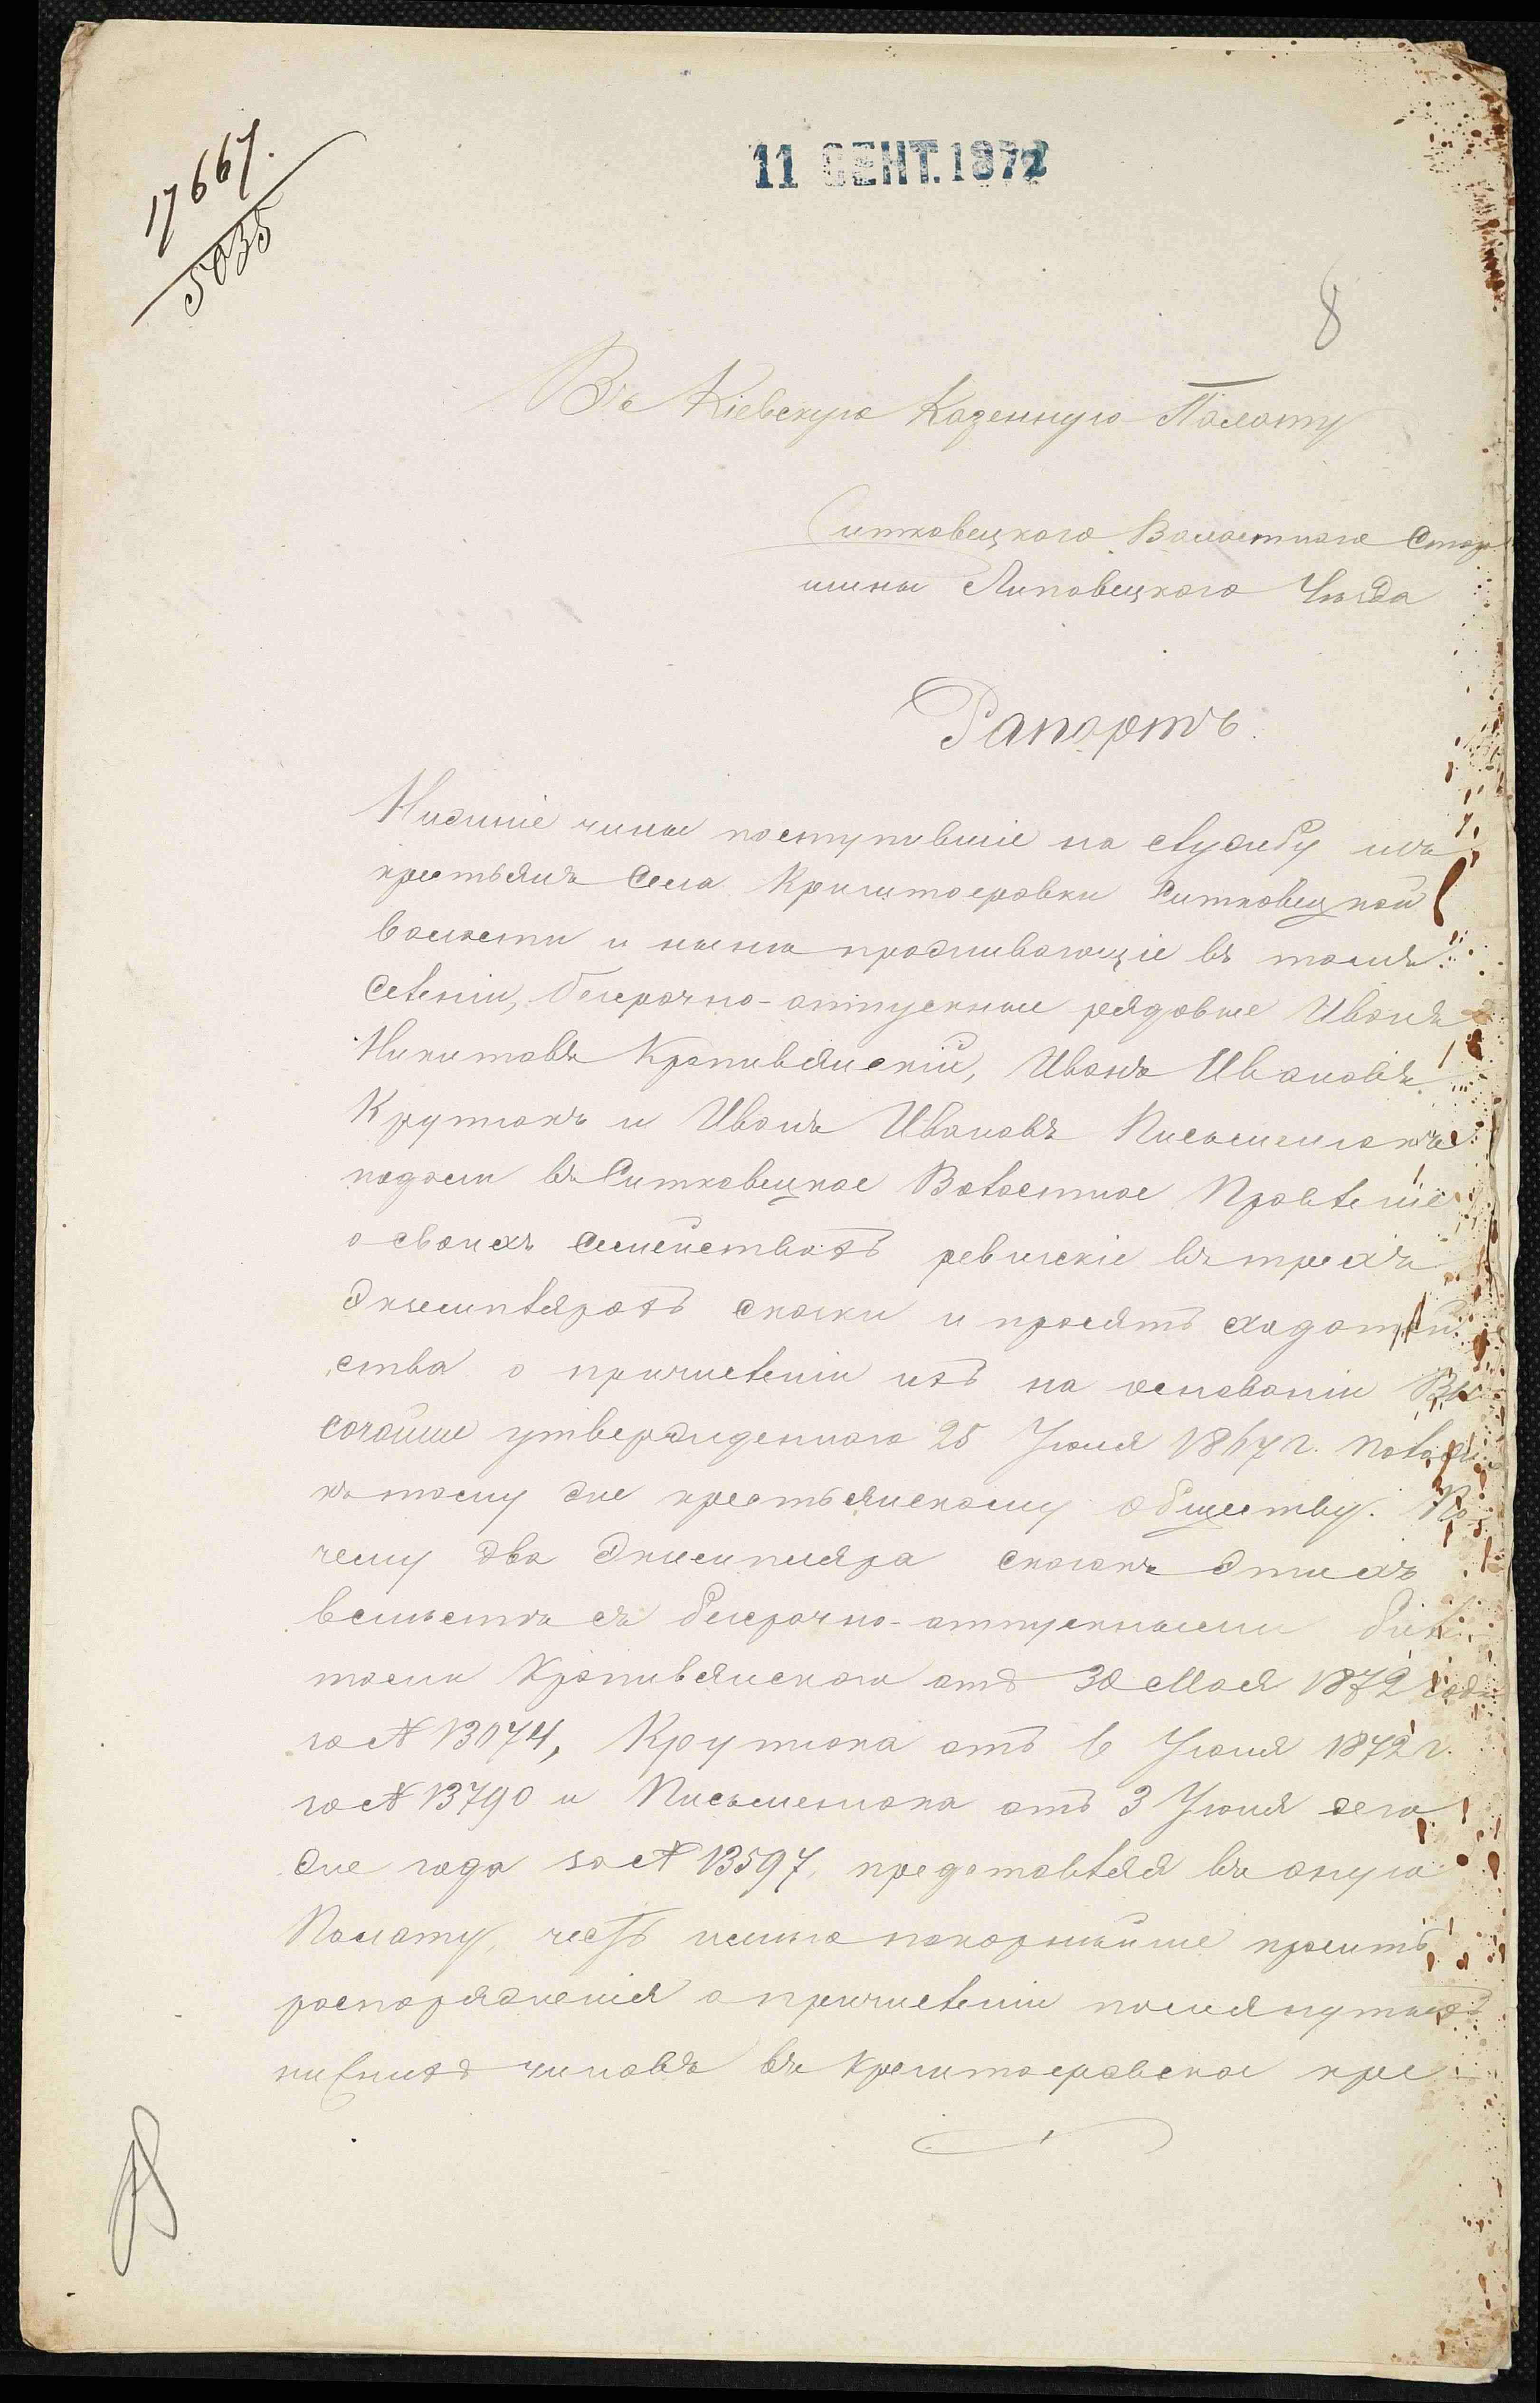 11 СЕНТ. 1872
17667.
5035
8
Въ Кіевскую Казенную Палату
Ситковецкаго Волостнаго Стар
шины Липовецкаго Уѣзда
Рапортъ.
Нижніе чины поступившіе на службу изъ
крестьянъ Села Криштоповки Ситковецкой
волости и нынѣ проживающіе въ томъ
селеніи, безсрочно-отпускные рядовые Иванъ
Никитовъ Кропивянскій, Иванъ Ивановъ
Крутакъ и Иванъ Ивановъ Письменнакъ
подали въ Ситковецкое Волостное Правленіе
о своихъ семействахъ ревизскіе въ трехъ
экземплярахъ сказки и просятъ ходатай
ства о причисленіи ихъ на основаніи Вы
сочайше утвержденнаго 25 Іюня 1867 г. полож.
къ тому же крестьянскому обществу. По-
чему два экземпляра сказокъ этихъ
вмѣстѣ съ безсрочно-отпускными биле-
тами Кропивянскаго отъ 30 Мая 1872 года
за № 13074, Крутака отъ 6 Іюня 1872 г.
за № 13790 и Письменнака отъ 3 Іюня сего
же года за № 13597, представляя въ оную
Палату, честь имѣю покорнѣйше просить
распоряженія о причисленіи помянутыхъ
нижнихъ чиновъ въ крестьянское кре-